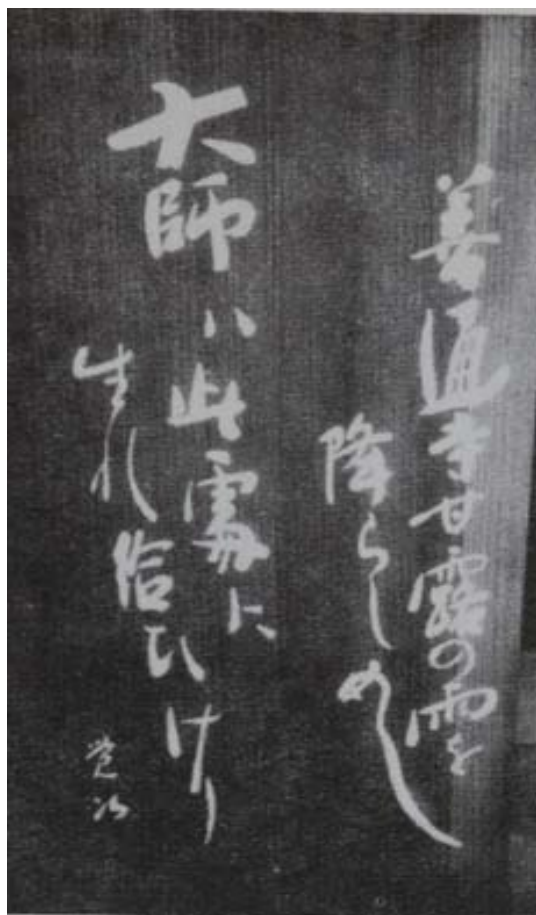 善通寺甘露の雨を
降らしめし
大師ハ此處に
生れ給ひけり